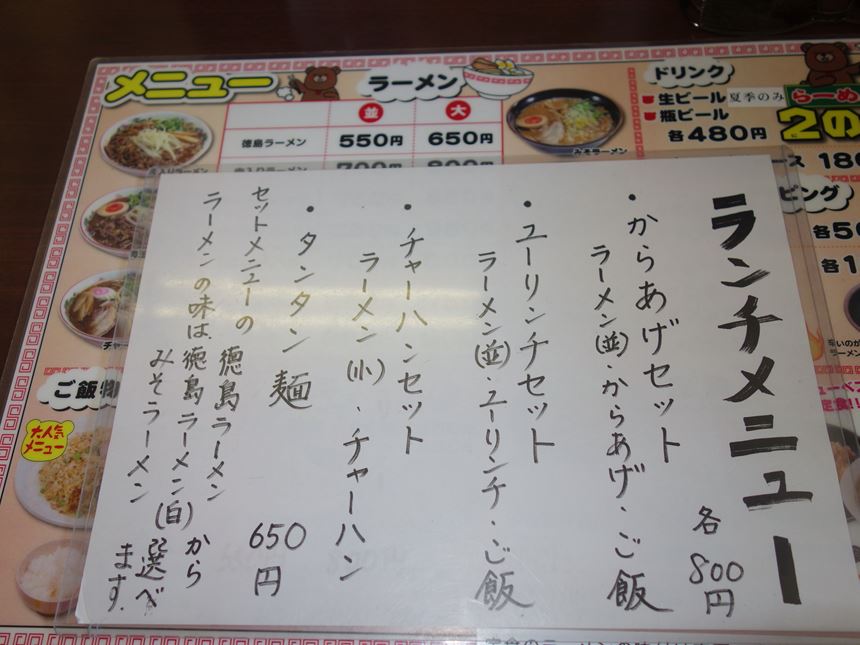 メニュー
ラーメン
並
大
徳島ラーメン
550円
650円
みそラーメン
ドリンク
生ビール 夏季のみ
瓶ビール
各480円
ご飯物
大人気
メニュー
ランチメニュー
各800円
・からあげセット
ラーメン(並)・からあげ・ご飯
・ユーリンチセット
ラーメン(並)・ユーリンチ・ご飯
・チャーハンセット
ラーメン(小)・チャーハン
・タンタン麺 650円
セットメニューの
ラーメンの味は、
徳島ラーメン
徳島ラーメン(白)
みそラーメン
から
選べ
ます。